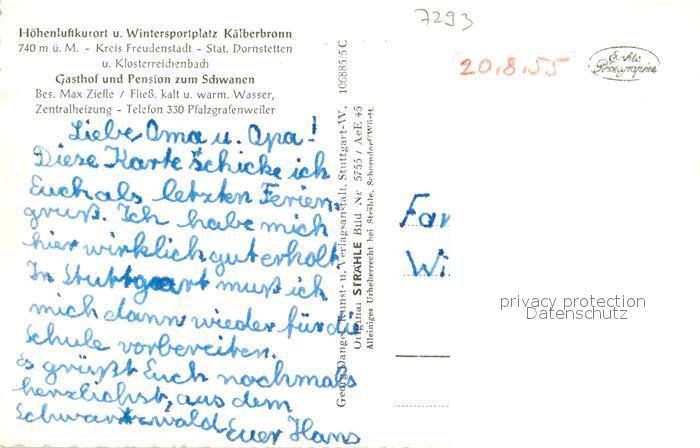 Höhenluftkurort u. Wintersportplatz Kälberbronn
740 m ü. M. - Kreis Freudenstadt - Stat. Dornstetten
u. Klosterreichenbach
Gasthof und Pension zum Schwanen
Bes. Max Ziefle / Fließ. kalt u. warm. Wasser,
Zentralheizung - Telefon 330 Pfalzgrafenweiler
Liebe Oma u. Opa!
Diese Karte schicke ich
Euch als letzten Ferien-
gruß. Ich habe mich
hier wirklich gut erholt.
In Stuttgart muß ich
mich dann wieder für die
Schule vorbereiten.
Es grüßt Euch nochmals
herzlichst, aus dem
Schwarzwald Euer Hans
Georg Dangel, Kunst- u. Verlagsanstalt, Stuttgart-W, 100885/5 C
Original STRÄHLE Bild Nr. 5755 / AeE 45
Alleiniges Urheberrecht bei Strähle, Schorndorf/Württ.
7293
20.8.55
Echte
Photographie
Fam
Wi
privacy protection
Datenschutz